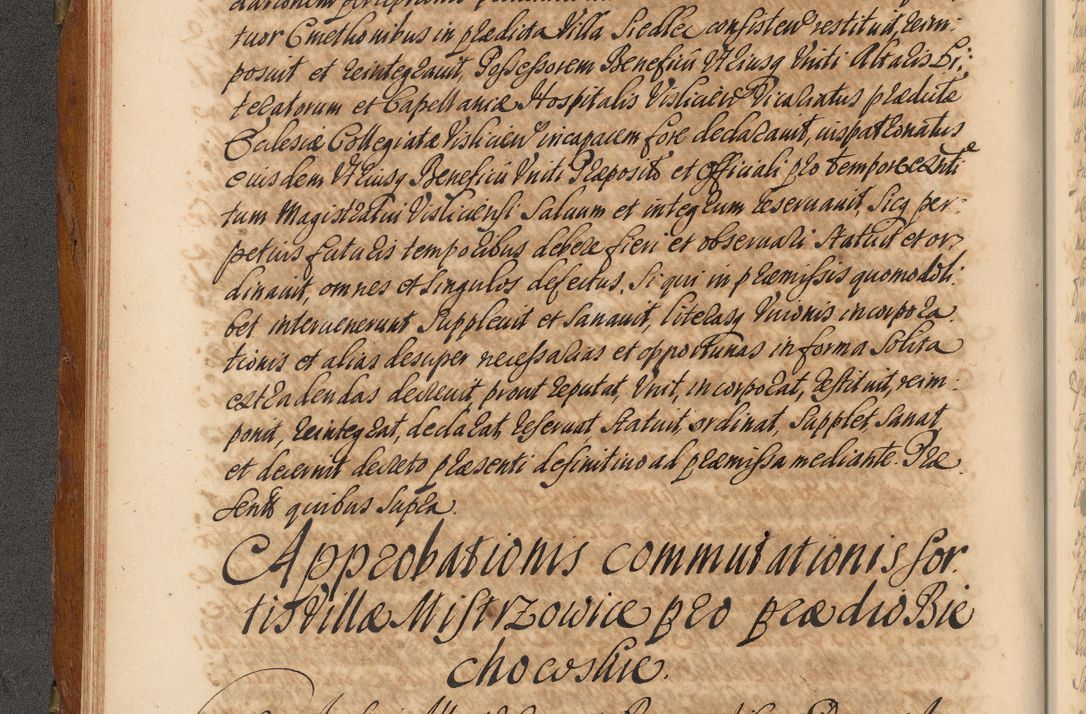 tuor Cmethonibus in prædicta Villa Siedlce consisten restituit, reim-
posuit et reintegrauit, Possessorem Beneficii Utriusq Uniti Altaris Li-
teratorum et Capellaniæ Hospitalis Vislicien Vicariatus prædictæ
Eclesiæ Collegiatæ Vislicien incapacem fore declarauit, iuspatronatus
eiusdem Utriusq Beneficii Uniti Præposito et Officiali pro tempore existenti
tum Magistratui Vislicensi saluum et integrum reseruauit, sicq per-
petuis futuris temporibus debere fieri et obseruari statuit et or-
dinauit, omnes et singulos defectus, si qui in præmissis quomodoli-
bet interuenerunt suppleuit et sanauit, literasq Unionis incorpora-
tionis et alias desuper necessarias et opportunas in forma solita
extradendas decreuit, prout reputat, Unit, incorporat, restituit, reim-
ponit, reintegrat, declarat, reseruat statuit, ordinat, supplet, sanat
et decernit decreto præsenti definitiuo ad præmissa mediante. Præ
sentib quibus supra.
Approbationis commutationis sor-
tis Villæ Mistrzowice pro prædio Bie
chowskie.